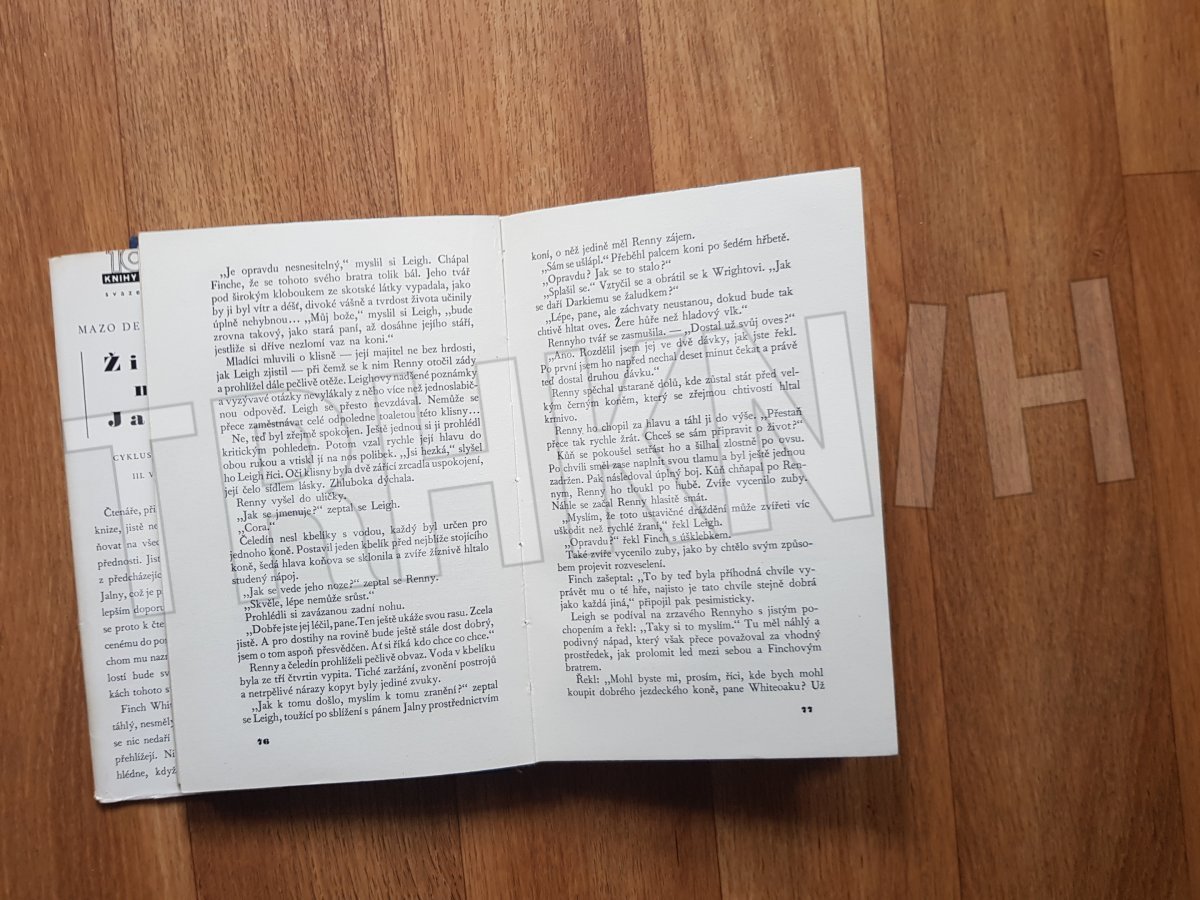 10
KNIHY
svaze
MAZO DE
Ži
n
Ja
CYKLUS
III. V
Čtenáře, při
knize, jistě ne
ňovat na všec
přednosti. Jist
z předcházejíc
Jalny, což je p
lepším doporu
se proto k čte
cenému do pou
chom mu nazn
lostí bude sv
kách tohoto s
Finch Whit
táhlý, nesmělý
se nic nedaří
přehlížejí. Ni
hlédne, když
„Je opravdu nesnesitelný,“ myslil si Leigh. Chápal
Finche, že se tohoto svého bratra tolik bál. Jeho tvář
pod širokým kloboukem ze skotské látky vypadala, jako
by ji byl vítr a déšť, divoké vášně a tvrdost života učinily
úplně nehybnou... „Můj bože,“ myslil si Leigh, „bude
zrovna takový, jako stará paní, až dosáhne jejího stáří,
jestliže si dříve nezlomí vaz na koni.“
Mladíci mluvili o klisně — její majitel ne bez hrdosti,
jak Leigh zjistil — při čemž se k nim Renny otočil zády
a prohlížel dále pečlivě otěže. Leighovy nadšené poznámky
a vyzývavé otázky nevylákaly z něho více než jednoslabič-
nou odpověď. Leigh se přesto nevzdával. Nemůže se
přece zaměstnávat celé odpoledne toaletou této klisny...
Ne, teď byl zřejmě spokojen. Ještě jednou si ji prohlédl
kritickým pohledem. Potom vzal rychle její hlavu do
obou rukou a vtiskl jí na nos polibek. „Jsi hezká,“ slyšel
ho Leigh říci. Oči klisny byla dvě zářící zrcadla uspokojení,
její čelo sídlem lásky. Zhluboka dýchala.
Renny vyšel do uličky.
„Jak se jmenuje?“ zeptal se Leigh.
„Cora.“
Čeledín nesl kbelíky s vodou, každý byl určen pro
jednoho koně. Postavil jeden kbelík před nejblíže stojícího
koně, šedá hlava koňova se sklonila a zvíře žíznivě hltalo
studený nápoj.
„Jak se vede jeho noze?“ zeptal se Renny.
„Skvěle, lépe nemůže srůst.“
Prohlédli si zavázanou zadní nohu.
„Dobře jste jej léčil, pane. Ten ještě ukáže svou rasu. Zcela
jistě. A pro dostihy na rovině bude ještě stále dost dobrý,
jsem o tom aspoň přesvědčen. Ať si říká kdo chce co chce.“
Renny a čeledín prohlíželi pečlivě obvaz. Voda v kbelíku
byla ze tří čtvrtin vypita. Tiché zaržání, zvonění postrojů
a netrpělivé nárazy kopyt byly jediné zvuky.
„Jak k tomu došlo, myslím k tomu zranění?“ zeptal
se Leigh, toužící po sblížení s pánem Jalny prostřednictvím
76
koní, o něž jedině měl Renny zájem.
„Sám se ušlápl.“ Přeběhl palcem koni po šedém hřbetě.
„Opravdu? Jak se to stalo?“
„Splašil se.“ Vztyčil se a obrátil se k Wrightovi. „Jak
se daří Darkiemu se žaludkem?“
„Lépe, pane, ale záchvaty neustanou, dokud bude tak
chtivě hltat oves. Žere hůře než hladový vlk.“
Rennyho tvář se zasmušila. — „Dostal už svůj oves?“
„Ano. Rozdělil jsem jej ve dvě dávky, jak jste řekl.
Po první jsem ho napřed nechal deset minut čekat a právě
teď dostal druhou dávku.“
Renny spěchal ustaraně dolů, kde zůstal stát před vel-
kým černým koněm, který se zřejmou chtivostí hltal
krmivo.
Renny ho chopil za hlavu a táhl ji do výše. „Přestaň
přece tak rychle žrát. Chceš se sám připravit o život?“
Kůň se pokoušel setřást ho a šilhal zlostně po ovsu.
Po chvíli směl zase naplnit svou tlamu a byl ještě jednou
zadržen. Pak následoval úplný boj. Kůň chňapal po Ren-
nym, Renny ho tloukl po hubě. Zvíře vycenilo zuby.
Náhle se začal Renny hlasitě smát.
„Myslím, že toto ustavičné dráždění může zvířeti víc
uškodit než rychlé žraní,“ řekl Leigh.
„Opravdu?“ řekl Finch s úšklebkem.
Také zvíře vycenilo zuby, jako by chtělo svým způso-
bem projevit rozveselení.
Finch zašeptal: „To by teď byla příhodná chvíle vy-
právět mu o té hře, najisto je tato chvíle stejně dobrá
jako každá jiná,“ připojil pak pesimisticky.
Leigh se podíval na zrzavého Rennyho s jistým po-
chopením a řekl: „Taky si to myslím.“ Tu měl náhlý a
podivný nápad, který však přece považoval za vhodný
prostředek, jak prolomit led mezi sebou a Finchovým
bratrem.
Řekl: „Mohl byste mi, prosím, říci, kde bych mohl
koupit dobrého jezdeckého koně, pane Whiteoaku? Už
77
TRHKNIH